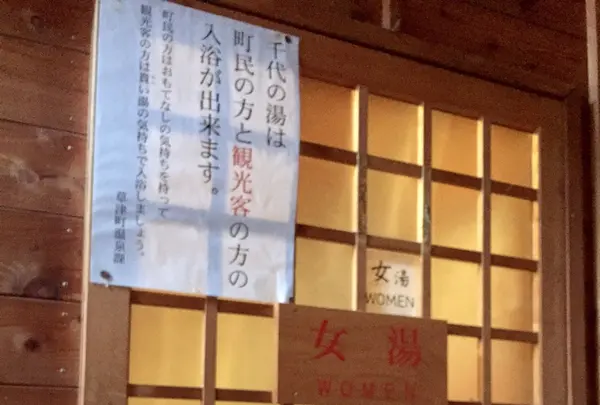 千代の湯は
町民の方と観光客の方の
入浴が出来ます。
町民の方はおもてなしの気持ちを持って
観光客の方は貰い湯の気持ちで入浴しましょう。
草津町温泉課
女湯
WOMEN
女湯
WOMEN